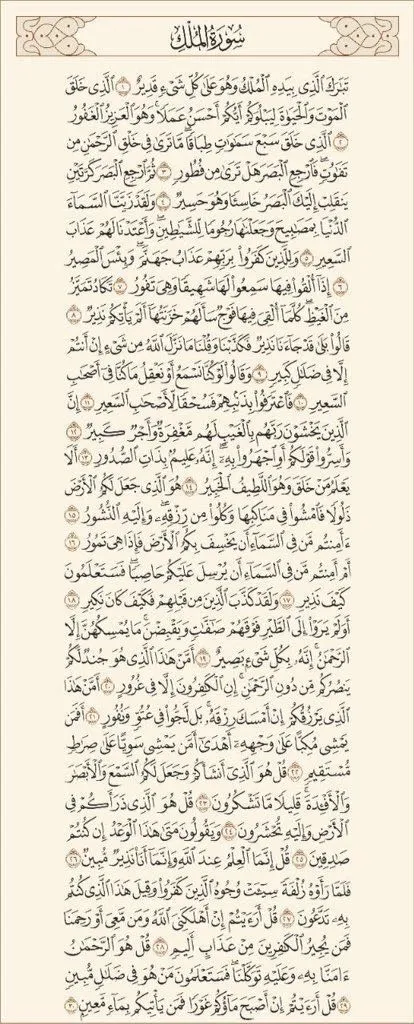 سُورَةُ المُلْكِ
تَبَٰرَكَ ٱلَّذِى بِيَدِهِ ٱلْمُلْكُ وَهُوَ عَلَىٰ كُلِّ شَىْءٍ قَدِيرٌ ١ ٱلَّذِى خَلَقَ
ٱلْمَوْتَ وَٱلْحَيَوٰةَ لِيَبْلُوَكُمْ أَيُّكُمْ أَحْسَنُ عَمَلًا وَهُوَ ٱلْعَزِيزُ ٱلْغَفُورُ
٢ ٱلَّذِى خَلَقَ سَبْعَ سَمَٰوَٰتٍ طِبَاقًا مَّا تَرَىٰ فِى خَلْقِ ٱلرَّحْمَٰنِ مِن
تَفَٰوُتٍ فَٱرْجِعِ ٱلْبَصَرَ هَلْ تَرَىٰ مِن فُطُورٍ ٣ ثُمَّ ٱرْجِعِ ٱلْبَصَرَ كَرَّتَيْنِ
يَنقَلِبْ إِلَيْكَ ٱلْبَصَرُ خَاسِئًا وَهُوَ حَسِيرٌ ٤ وَلَقَدْ زَيَّنَّا ٱلسَّمَآءَ
ٱلدُّنْيَا بِمَصَٰبِيحَ وَجَعَلْنَٰهَا رُجُومًا لِّلشَّيَٰطِينِ وَأَعْتَدْنَا لَهُمْ عَذَابَ
ٱلسَّعِيرِ ٥ وَلِلَّذِينَ كَفَرُوا۟ بِرَبِّهِمْ عَذَابُ جَهَنَّمَ وَبِئْسَ ٱلْمَصِيرُ
٦ إِذَآ أُلْقُوا۟ فِيهَا سَمِعُوا۟ لَهَا شَهِيقًا وَهِىَ تَفُورُ ٧ تَكَادُ تَمَيَّزُ
مِنَ ٱلْغَيْظِ كُلَّمَآ أُلْقِىَ فِيهَا فَوْجٌ سَأَلَهُمْ خَزَنَتُهَآ أَلَمْ يَأْتِكُمْ نَذِيرٌ ٨
قَالُوا۟ بَلَىٰ قَدْ جَآءَنَا نَذِيرٌ فَكَذَّبْنَا وَقُلْنَا مَا نَزَّلَ ٱللَّهُ مِن شَىْءٍ إِنْ أَنتُمْ
إِلَّا فِى ضَلَٰلٍ كَبِيرٍ ٩ وَقَالُوا۟ لَوْ كُنَّا نَسْمَعُ أَوْ نَعْقِلُ مَا كُنَّا فِىٓ أَصْحَٰبِ
ٱلسَّعِيرِ ١٠ فَٱعْتَرَفُوا۟ بِذَنۢبِهِمْ فَسُحْقًا لِّأَصْحَٰبِ ٱلسَّعِيرِ ١١ إِنَّ
ٱلَّذِينَ يَخْشَوْنَ رَبَّهُم بِٱلْغَيْبِ لَهُم مَّغْفِرَةٌ وَأَجْرٌ كَبِيرٌ ١٢
وَأَسِرُّوا۟ قَوْلَكُمْ أَوِ ٱجْهَرُوا۟ بِهِۦٓ إِنَّهُۥ عَلِيمٌۢ بِذَاتِ ٱلصُّدُورِ ١٣ أَلَا
يَعْلَمُ مَنْ خَلَقَ وَهُوَ ٱللَّطِيفُ ٱلْخَبِيرُ ١٤ هُوَ ٱلَّذِى جَعَلَ لَكُمُ ٱلْأَرْضَ
ذَلُولًا فَٱمْشُوا۟ فِى مَنَاكِبِهَا وَكُلُوا۟ مِن رِّزْقِهِۦ وَإِلَيْهِ ٱلنُّشُورُ ١٥
ءَأَمِنتُم مَّن فِى ٱلسَّمَآءِ أَن يَخْسِفَ بِكُمُ ٱلْأَرْضَ فَإِذَا هِىَ تَمُورُ ١٦
أَمْ أَمِنتُم مَّن فِى ٱلسَّمَآءِ أَن يُرْسِلَ عَلَيْكُمْ حَاصِبًا فَسَتَعْلَمُونَ
كَيْفَ نَذِيرِ ١٧ وَلَقَدْ كَذَّبَ ٱلَّذِينَ مِن قَبْلِهِمْ فَكَيْفَ كَانَ نَكِيرِ ١٨
أَوَلَمْ يَرَوْا۟ إِلَى ٱلطَّيْرِ فَوْقَهُمْ صَٰٓفَّٰتٍ وَيَقْبِضْنَ مَا يُمْسِكُهُنَّ إِلَّا
ٱلرَّحْمَٰنُ إِنَّهُۥ بِكُلِّ شَىْءٍۭ بَصِيرٌ ١٩ أَمَّنْ هَٰذَا ٱلَّذِى هُوَ جُندٌ لَّكُمْ
يَنصُرُكُم مِّن دُونِ ٱلرَّحْمَٰنِ إِنِ ٱلْكَٰفِرُونَ إِلَّا فِى غُرُورٍ ٢٠ أَمَّنْ هَٰذَا
ٱلَّذِى يَرْزُقُكُمْ إِنْ أَمْسَكَ رِزْقَهُۥ بَل لَّجُّوا۟ فِى عُتُوٍّ وَنُفُورٍ ٢١ أَفَمَن
يَمْشِى مُكِبًّا عَلَىٰ وَجْهِهِۦٓ أَهْدَىٰٓ أَمَّن يَمْشِى سَوِيًّا عَلَىٰ صِرَٰطٍ
مُّسْتَقِيمٍ ٢٢ قُلْ هُوَ ٱلَّذِىٓ أَنشَأَكُمْ وَجَعَلَ لَكُمُ ٱلسَّمْعَ وَٱلْأَبْصَٰرَ
وَٱلْأَفْـِٔدَةَ قَلِيلًا مَّا تَشْكُرُونَ ٢٣ قُلْ هُوَ ٱلَّذِى ذَرَأَكُمْ فِى
ٱلْأَرْضِ وَإِلَيْهِ تُحْشَرُونَ ٢٤ وَيَقُولُونَ مَتَىٰ هَٰذَا ٱلْوَعْدُ إِن كُنتُمْ
صَٰدِقِينَ ٢٥ قُلْ إِنَّمَا ٱلْعِلْمُ عِندَ ٱللَّهِ وَإِنَّمَآ أَنَا۠ نَذِيرٌ مُّبِينٌ ٢٦
فَلَمَّا رَأَوْهُ زُلْفَةً سِيٓـَٔتْ وُجُوهُ ٱلَّذِينَ كَفَرُوا۟ وَقِيلَ هَٰذَا ٱلَّذِى كُنتُم
بِهِۦ تَدَّعُونَ ٢٧ قُلْ أَرَءَيْتُمْ إِنْ أَهْلَكَنِىَ ٱللَّهُ وَمَن مَّعِىَ أَوْ رَحِمَنَا
فَمَن يُجِيرُ ٱلْكَٰفِرِينَ مِنْ عَذَابٍ أَلِيمٍ ٢٨ قُلْ هُوَ ٱلرَّحْمَٰنُ
ءَامَنَّا بِهِۦ وَعَلَيْهِ تَوَكَّلْنَا فَسَتَعْلَمُونَ مَنْ هُوَ فِى ضَلَٰلٍ مُّبِينٍ
٢٩ قُلْ أَرَءَيْتُمْ إِنْ أَصْبَحَ مَآؤُكُمْ غَوْرًا فَمَن يَأْتِيكُم بِمَآءٍ مَّعِينٍۭ ٣٠